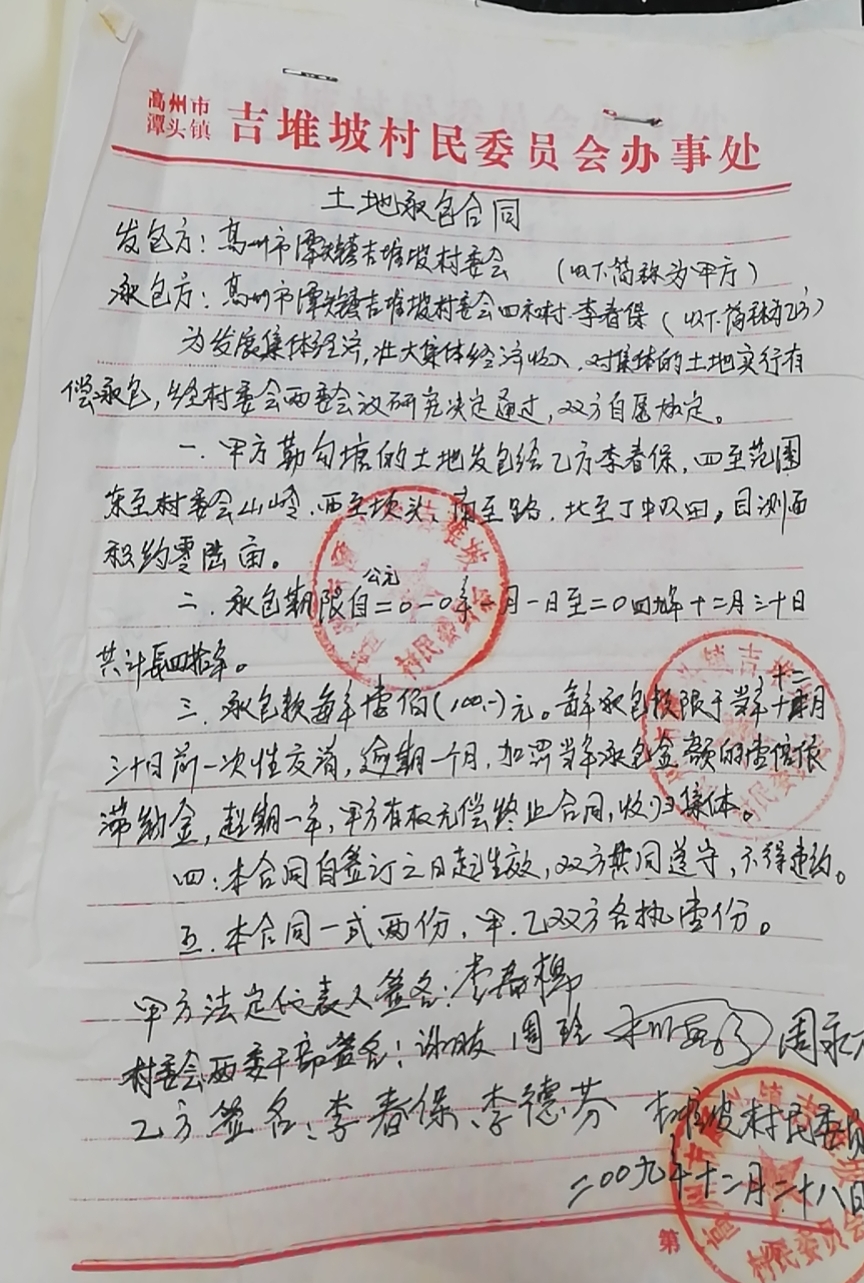 高州市
潭头镇 吉堆坡村民委员会办事处
土地承包合同
发包方：高州市潭头镇吉堆坡村委会 （以下简称为甲方）
承包方：高州市潭头镇吉堆坡村委会四和村 李春保（以下简称为乙方）
为发展集体经济，壮大集体经济收入，对集体的土地实行有
偿承包，经村委会两委会议研究决定通过，双方自愿协定。
一．甲方勒勾塘的土地发包给乙方李春保，四至范围
东至村委会山岭，西至坝头，南至路，北至丁中队田，目测面
积约零陆亩。
二．承包期限自公元二〇一〇年一月一日至二〇四九年十二月三十日
共计四拾年。
三．承包款每年壹佰（100.-）元。每年承包款限于当年十二月
三十日前一次性交清，逾期一个月，加罚当年承包金额的壹倍作
滞纳金，超期一年，甲方有权无偿终止合同，收归集体。
四：本合同自签订之日起生效，双方共同遵守，不得违约。
五．本合同一式两份，甲．乙双方各执壹份。
甲方法定代表人签名：李
村委会两委干部签名： 周 周
乙方签名：李春保、李德芬 吉堆坡村民委员
二00九年十二月二十八日
第
村民委员会